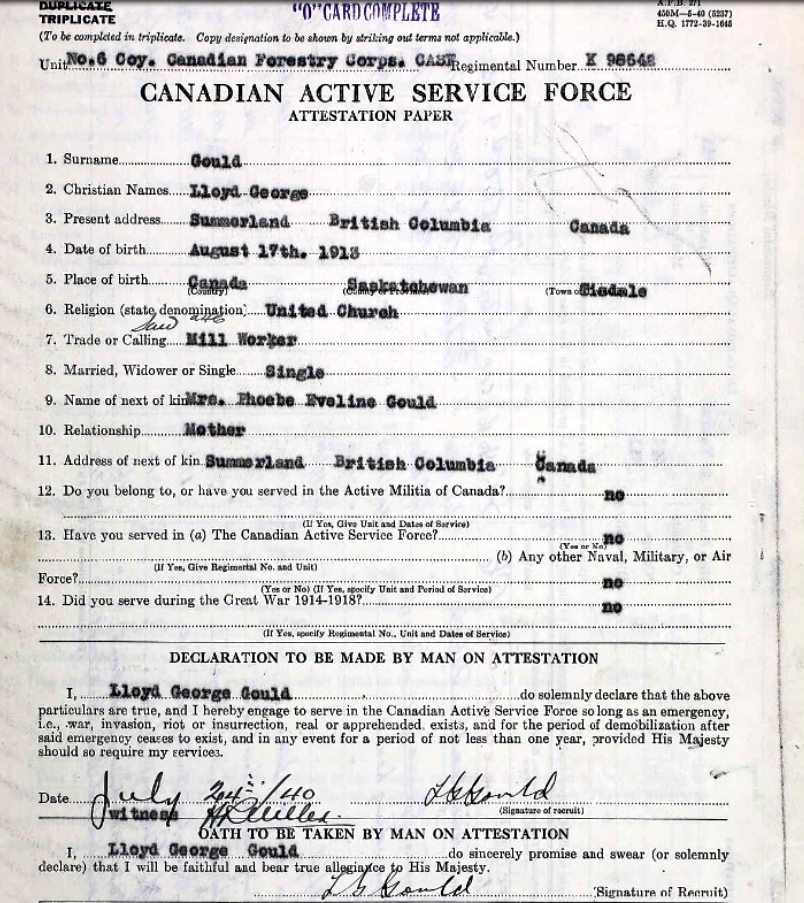 DUPLICATE
TRIPLICATE
"O" CARD COMPLETE
450M—5-40 (5237)
H.Q. 1772-39-1645
(To be completed in triplicate. Copy designation to be shown by striking out terms not applicable.)
Unit No.6 Coy. Canadian Forestry Corps. CASF Regimental Number K 98642
CANADIAN ACTIVE SERVICE FORCE
ATTESTATION PAPER
1. Surname Gould
2. Christian Names Lloyd George
3. Present address Summerland British Columbia Canada
4. Date of birth August 17th. 1913
5. Place of birth Canada Saskatchewan Tisdale
(Country) (Town or
6. Religion (state denomination) United Church
7. Trade or Calling Mill Worker
8. Married, Widower or Single Single
9. Name of next of kin Mrs. Phoebe Eveline Gould
10. Relationship Mother
11. Address of next of kin Summerland British Columbia Canada
12. Do you belong to, or have you served in the Active Militia of Canada? no
(If Yes, Give Unit and Dates of Service)
13. Have you served in (a) The Canadian Active Service Force? no
(Yes or No)
(b) Any other Naval, Military, or Air
(If Yes, Give Regimental No. and Unit)
Force? no
(Yes or No) (If Yes, specify Unit and Period of Service)
14. Did you serve during the Great War 1914-1918? no
(If Yes, specify Regimental No., Unit and Dates of Service)
DECLARATION TO BE MADE BY MAN ON ATTESTATION
I, Lloyd George Gould do solemnly declare that the above
particulars are true, and I hereby engage to serve in the Canadian Active Service Force so long as an emergency,
i.e., war, invasion, riot or insurrection, real or apprehended, exists, and for the period of demobilization after
said emergency ceases to exist, and in any event for a period of not less than one year, provided His Majesty
should so require my services.
Date July 24 /40 L G Gould
(Signature of recruit)
witness
OATH TO BE TAKEN BY MAN ON ATTESTATION
I, Lloyd George Gould do sincerely promise and swear (or solemnly
declare) that I will be faithful and bear true allegiance to His Majesty.
L G Gould (Signature of Recruit)